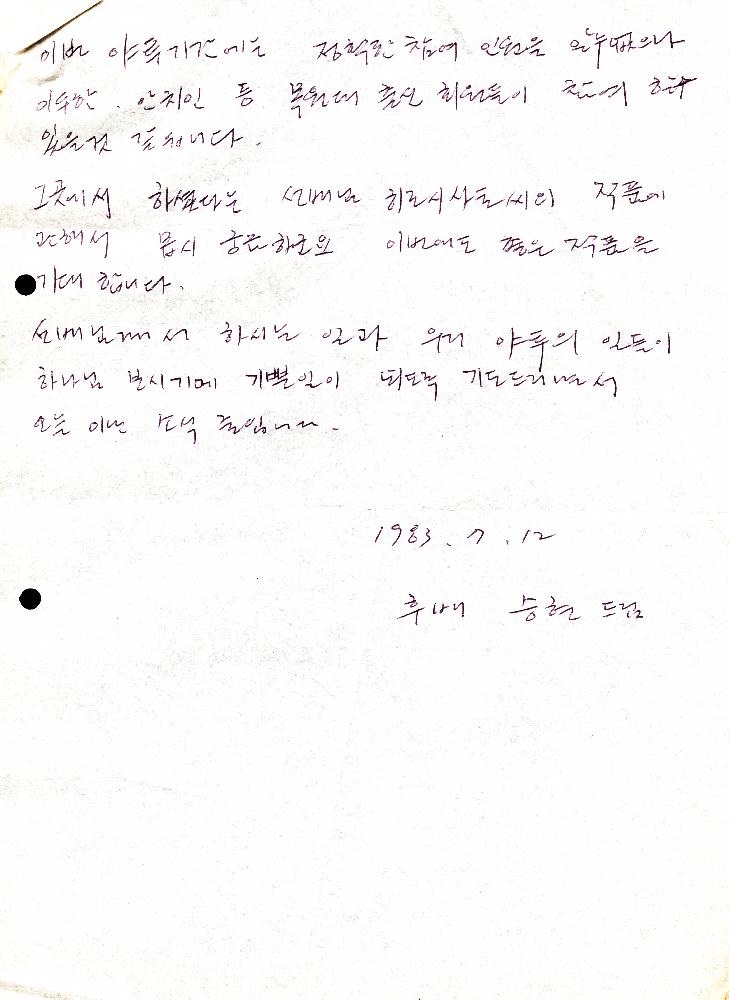 이번 야투기간에는 정확한 참여 인원을 알수없으나
이수한. 안치인 등 목원대 출신 회원들이 참여 하고
있을것 같습니다.
그곳에서 하셨다는 선배님 히로시사토씨의 작품에
관해서 몹시 궁금하군요 이번에도 좋은 작품을
기대 합니다.
선배님께서 하시는 일과 우리 야투의 일들이
하나님 보시기에 기쁠일이 되도록 기도드리면서
오늘 이만 소식 줄입니다.
1983. 7. 12
후배 승현 드림